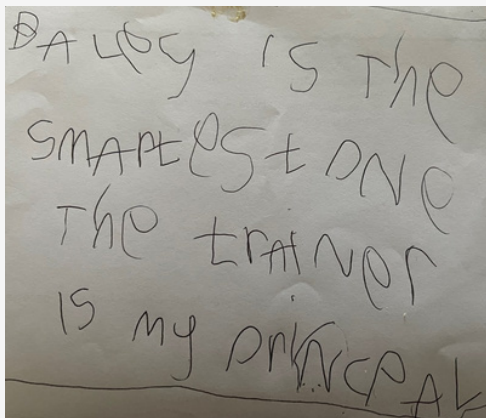 BALey is The
SMARtest ONe
The trAiNer
is my PRiNCPAL